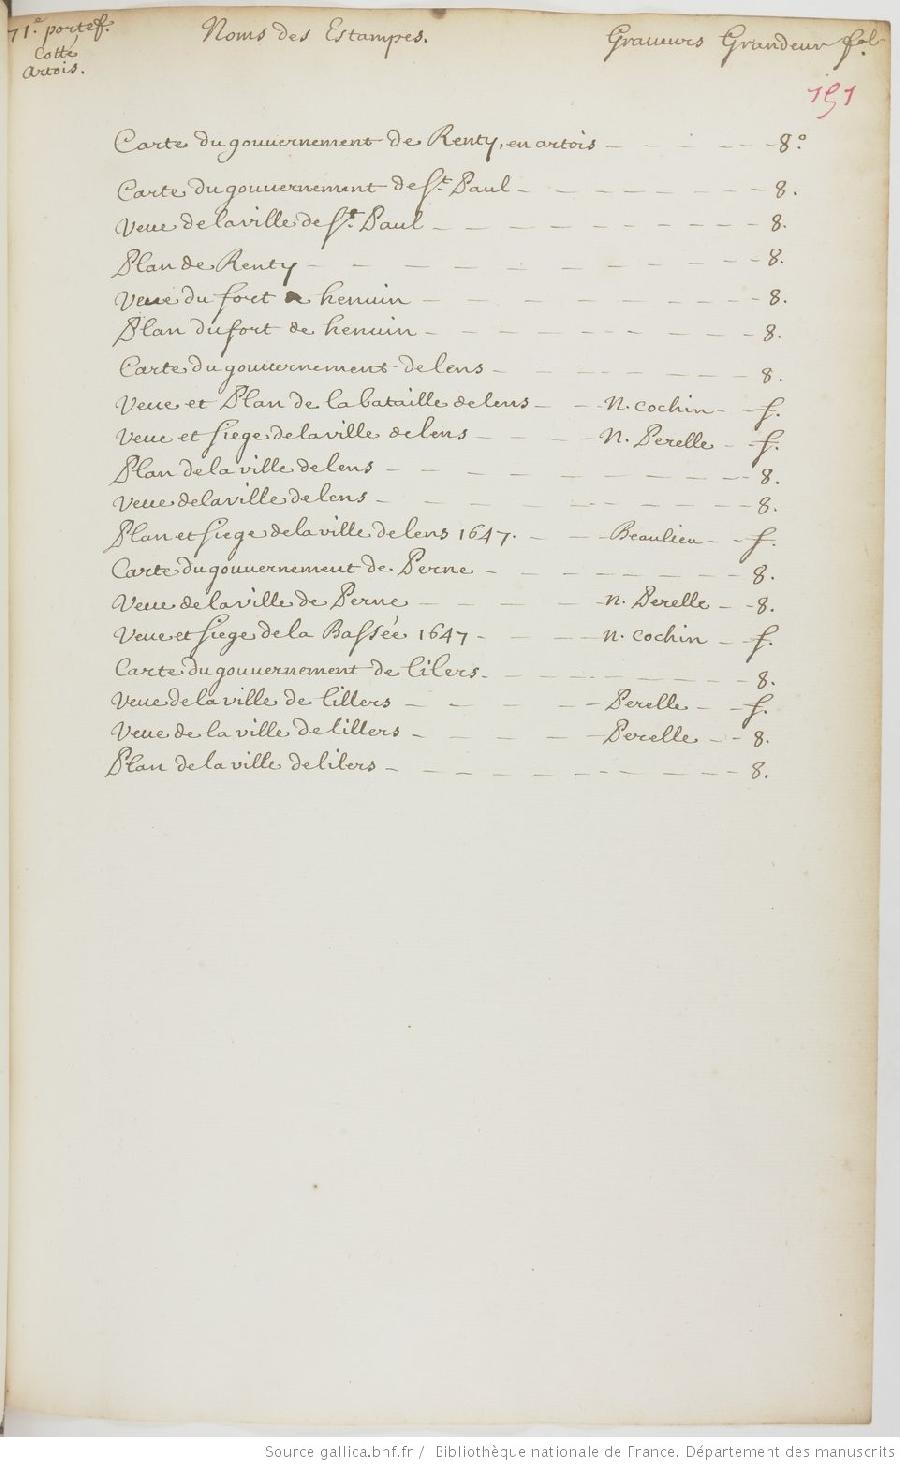 71.e portef. Noms des Estampes. Graveurs Grandeur fol.
Cotté
Artois.
191
Carte du gouvernement de Renty, en artois - - - - 8.o
Carte du gouvernement de St. Paul - - - - - - - 8.
Veue de la ville de St. Paul - - - - - - - - - 8.
Plan de Renty - - - - - - - - - - - 8.
Veue du fort de henuin - - - - - - - - - 8.
Plan du fort de henuin - - - - - - - - - 8.
Carte du gouvernement de lens - - - - - - - 8.
Veue et Plan de la bataille de lens - - - N. Cochin - - f.
Veue et siege de la ville de lens - - - - N. Perelle - f.
Plan de la ville de lens - - - - - - - - - - 8.
Veue de la ville de lens - - - - - - - - - - 8.
Plan et siege de la ville de lens 1647. - - - Beaulieu - - f.
Carte du gouvernement de Perne - - - - - - - - 8.
Veue de la ville de Perne - - - - - n. Perelle - - 8.
Veue et siege de la Bassée 1647 - - - - n. Cochin - f.
Carte du gouvernement de lilers. - - - - - - - 8.
Veue de la ville de lillers - - - - - Perelle - - f.
Veue de la ville de lillers - - - - - Perelle - - 8.
Plan de la ville de lilers - - - - - - - - - - 8.
Source gallica.bnf.fr / Bibliothèque nationale de France. Département des manuscrits